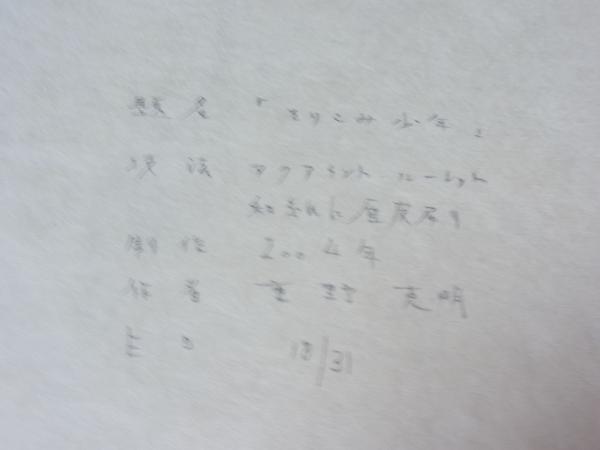 題名 「とりこみ少年」
技法 アクアチント・ルーレット
和紙に
制作 2004年
作者 重野 克明
E D 18/31